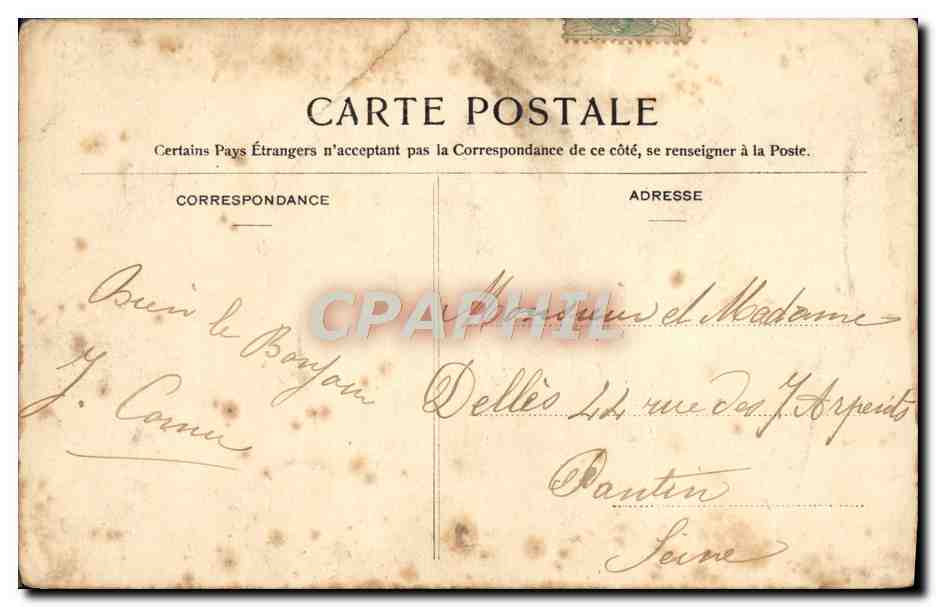 CARTE POSTALE
Certains Pays Étrangers n'acceptant pas la Correspondance de ce côté, se renseigner à la Poste.
CORRESPONDANCE
Bien le Bonjour
J. Cornu
ADRESSE
Monsieur et Madame
Dellès 44 rue des 7 Arpents
Pantin
Seine
CPAPHIL